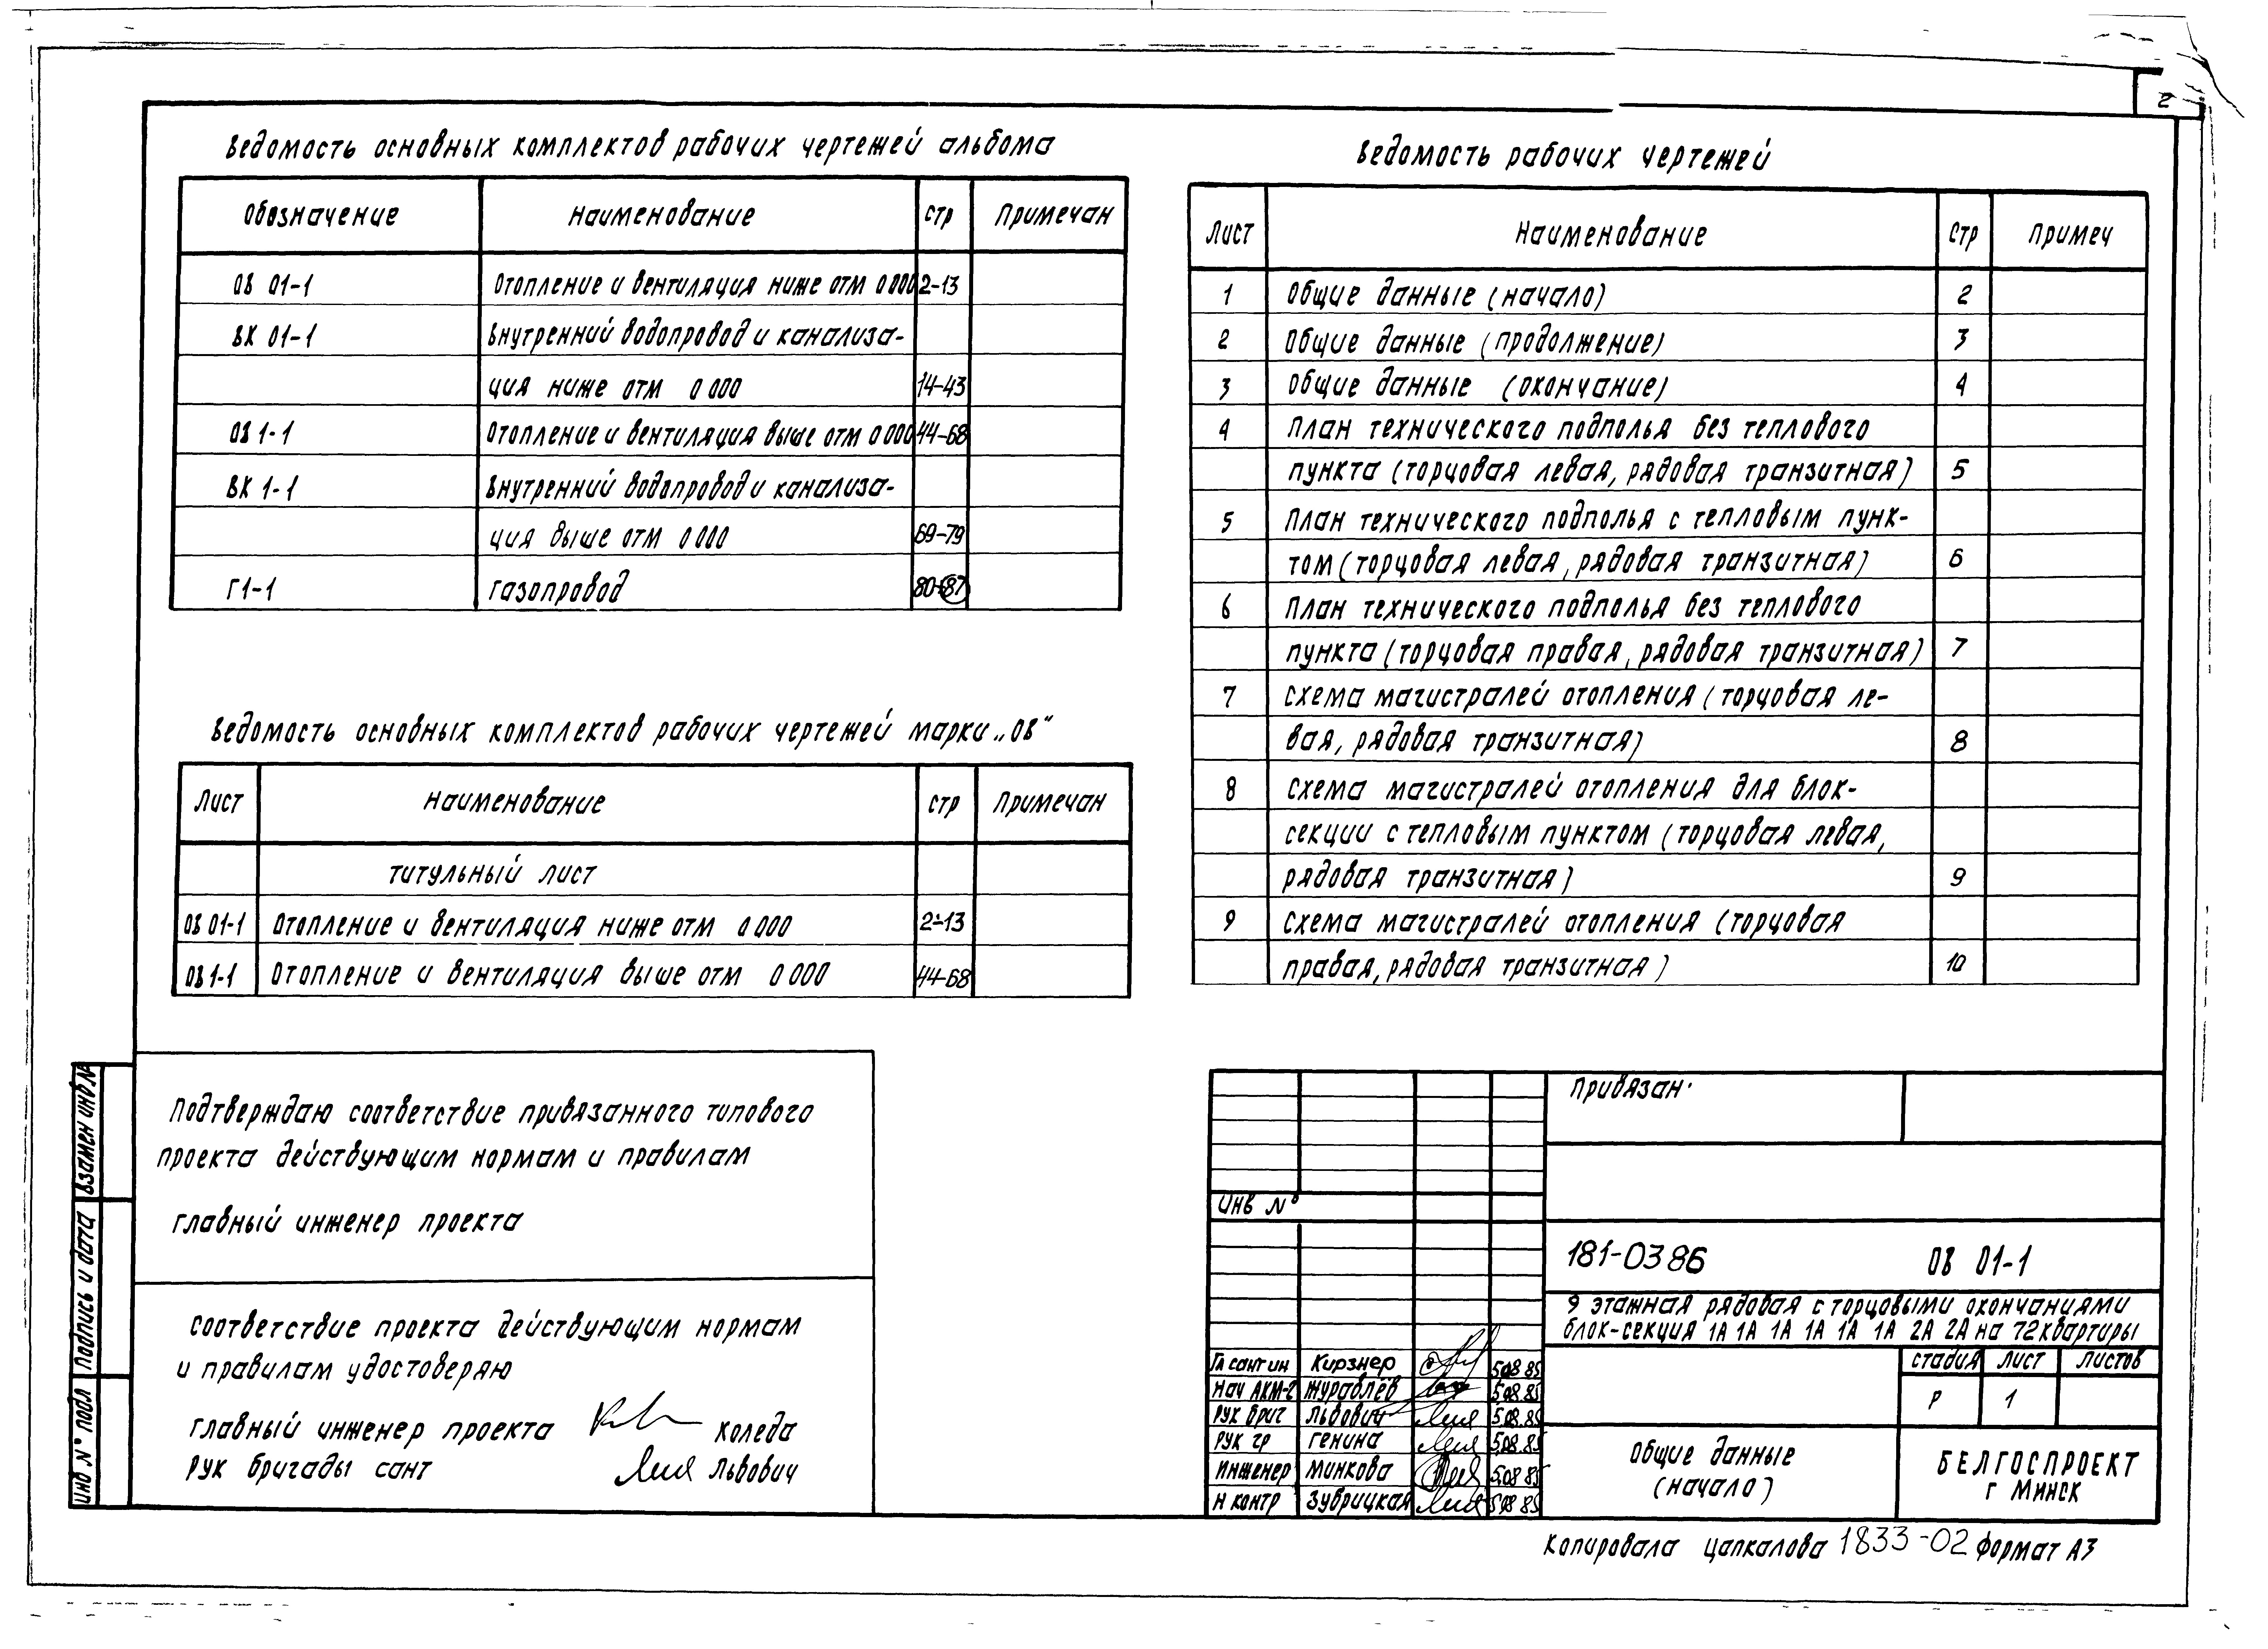 2
Ведомость основных комплектов рабочих чертежей альбома
Обозначение Наименование стр Примечан
ОВ 01-1 Отопление и вентиляция ниже отм 0 000 2-13
ВК 01-1 Внутренний водопровод и канализа-
ция ниже отм 0 000 14-43
ОВ 1-1 Отопление и вентиляция выше отм 0 000 44-68
ВК 1-1 Внутренний водопровод и канализа-
ция выше отм 0 000 69-79
Г1-1 Газопровод 80-87
Ведомость основных комплектов рабочих чертежей марки „ОВ“
Лист Наименование стр Примечан
Титульный лист
ОВ 01-1 Отопление и вентиляция ниже отм 0 000 2-13
ОВ 1-1 Отопление и вентиляция выше отм 0 000 44-68
Ведомость рабочих чертежей
Лист Наименование Стр Примеч
1 Общие данные (начало) 2
2 Общие данные (продолжение) 3
3 Общие данные (окончание) 4
4 План технического подполья без теплового
пункта (торцовая левая, рядовая транзитная) 5
5 План технического подполья с тепловым пунк-
том (торцовая левая, рядовая транзитная) 6
6 План технического подполья без теплового
пункта (торцовая правая, рядовая транзитная) 7
7 Схема магистралей отопления (торцовая ле-
вая, рядовая транзитная) 8
8 Схема магистралей отопления для блок-
секции с тепловым пунктом (торцовая левая,
рядовая транзитная) 9
9 Схема магистралей отопления (торцовая
правая, рядовая транзитная) 10
Подтверждаю соответствие привязанного типового
проекта действующим нормам и правилам
Главный инженер проекта
Соответствие проекта действующим нормам
и правилам удостоверяю
Главный инженер проекта Коледа
Рук бригады сант Львович
Взамен инв №
Подпись и дата
Инв № подл
Привязан.
Инв №
181-0386 ОВ 01-1
9 этажная рядовая с торцовыми окончаниями
блок-секция 1А 1А 1А 1А 1А 1А 2А 2А на 72 квартиры
Гл сант ин Кирзнер 5.08.85
Нач АКМ-2 Журавлёв 5.08.85
Рук бриг Львович 5.08.85
Рук гр Генина 5.08.85
Инженер Минкова 5.08.85
Н контр Зубрицкая 5.08.85
стадия лист листов
Р 1
Общие данные
(начало)
БЕЛГОСПРОЕКТ
г Минск
Копировала Цапкалова 1833-02 Формат А3